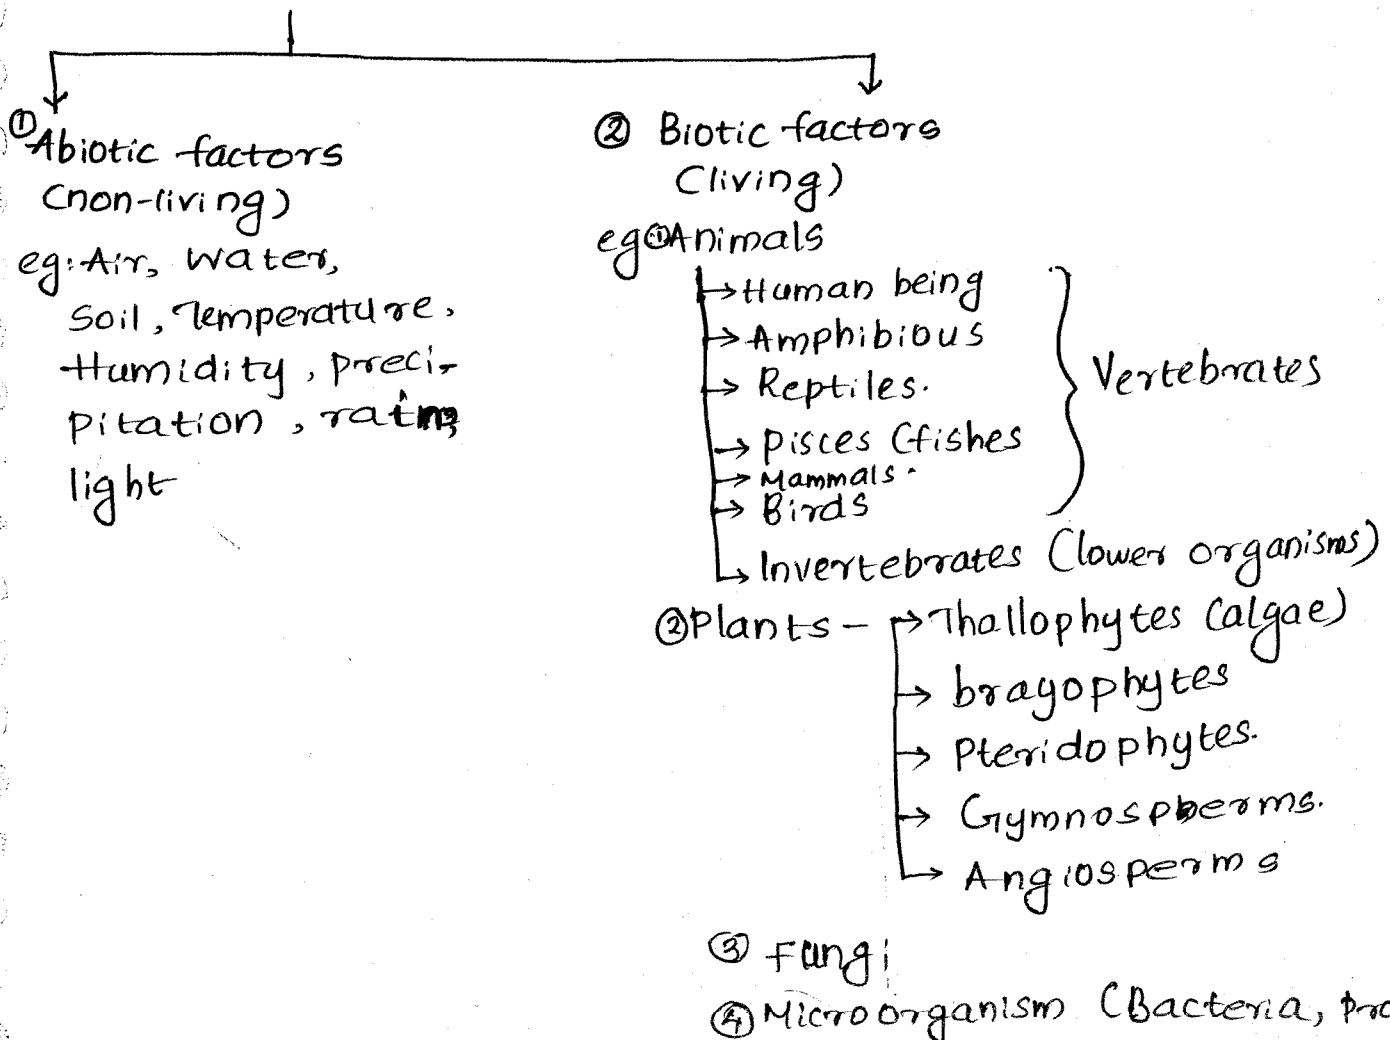 ① Abiotic factors
(non-living)
eg: Air, Water,
Soil, Temperature,
Humidity, preci-
pitation, rain,
light
② Biotic factors
(living)
eg ① Animals
→ Human being
→ Amphibious
→ Reptiles.
→ Pisces (fishes
→ Mammals.
→ Birds
Vertebrates
→ Invertebrates (lower organisms)
② Plants - → Thallophytes (algae)
→ brayophytes
→ Pteridophytes.
→ Gymnosperms.
→ Angiosperms
③ Fungi
④ Microorganism (Bacteria,